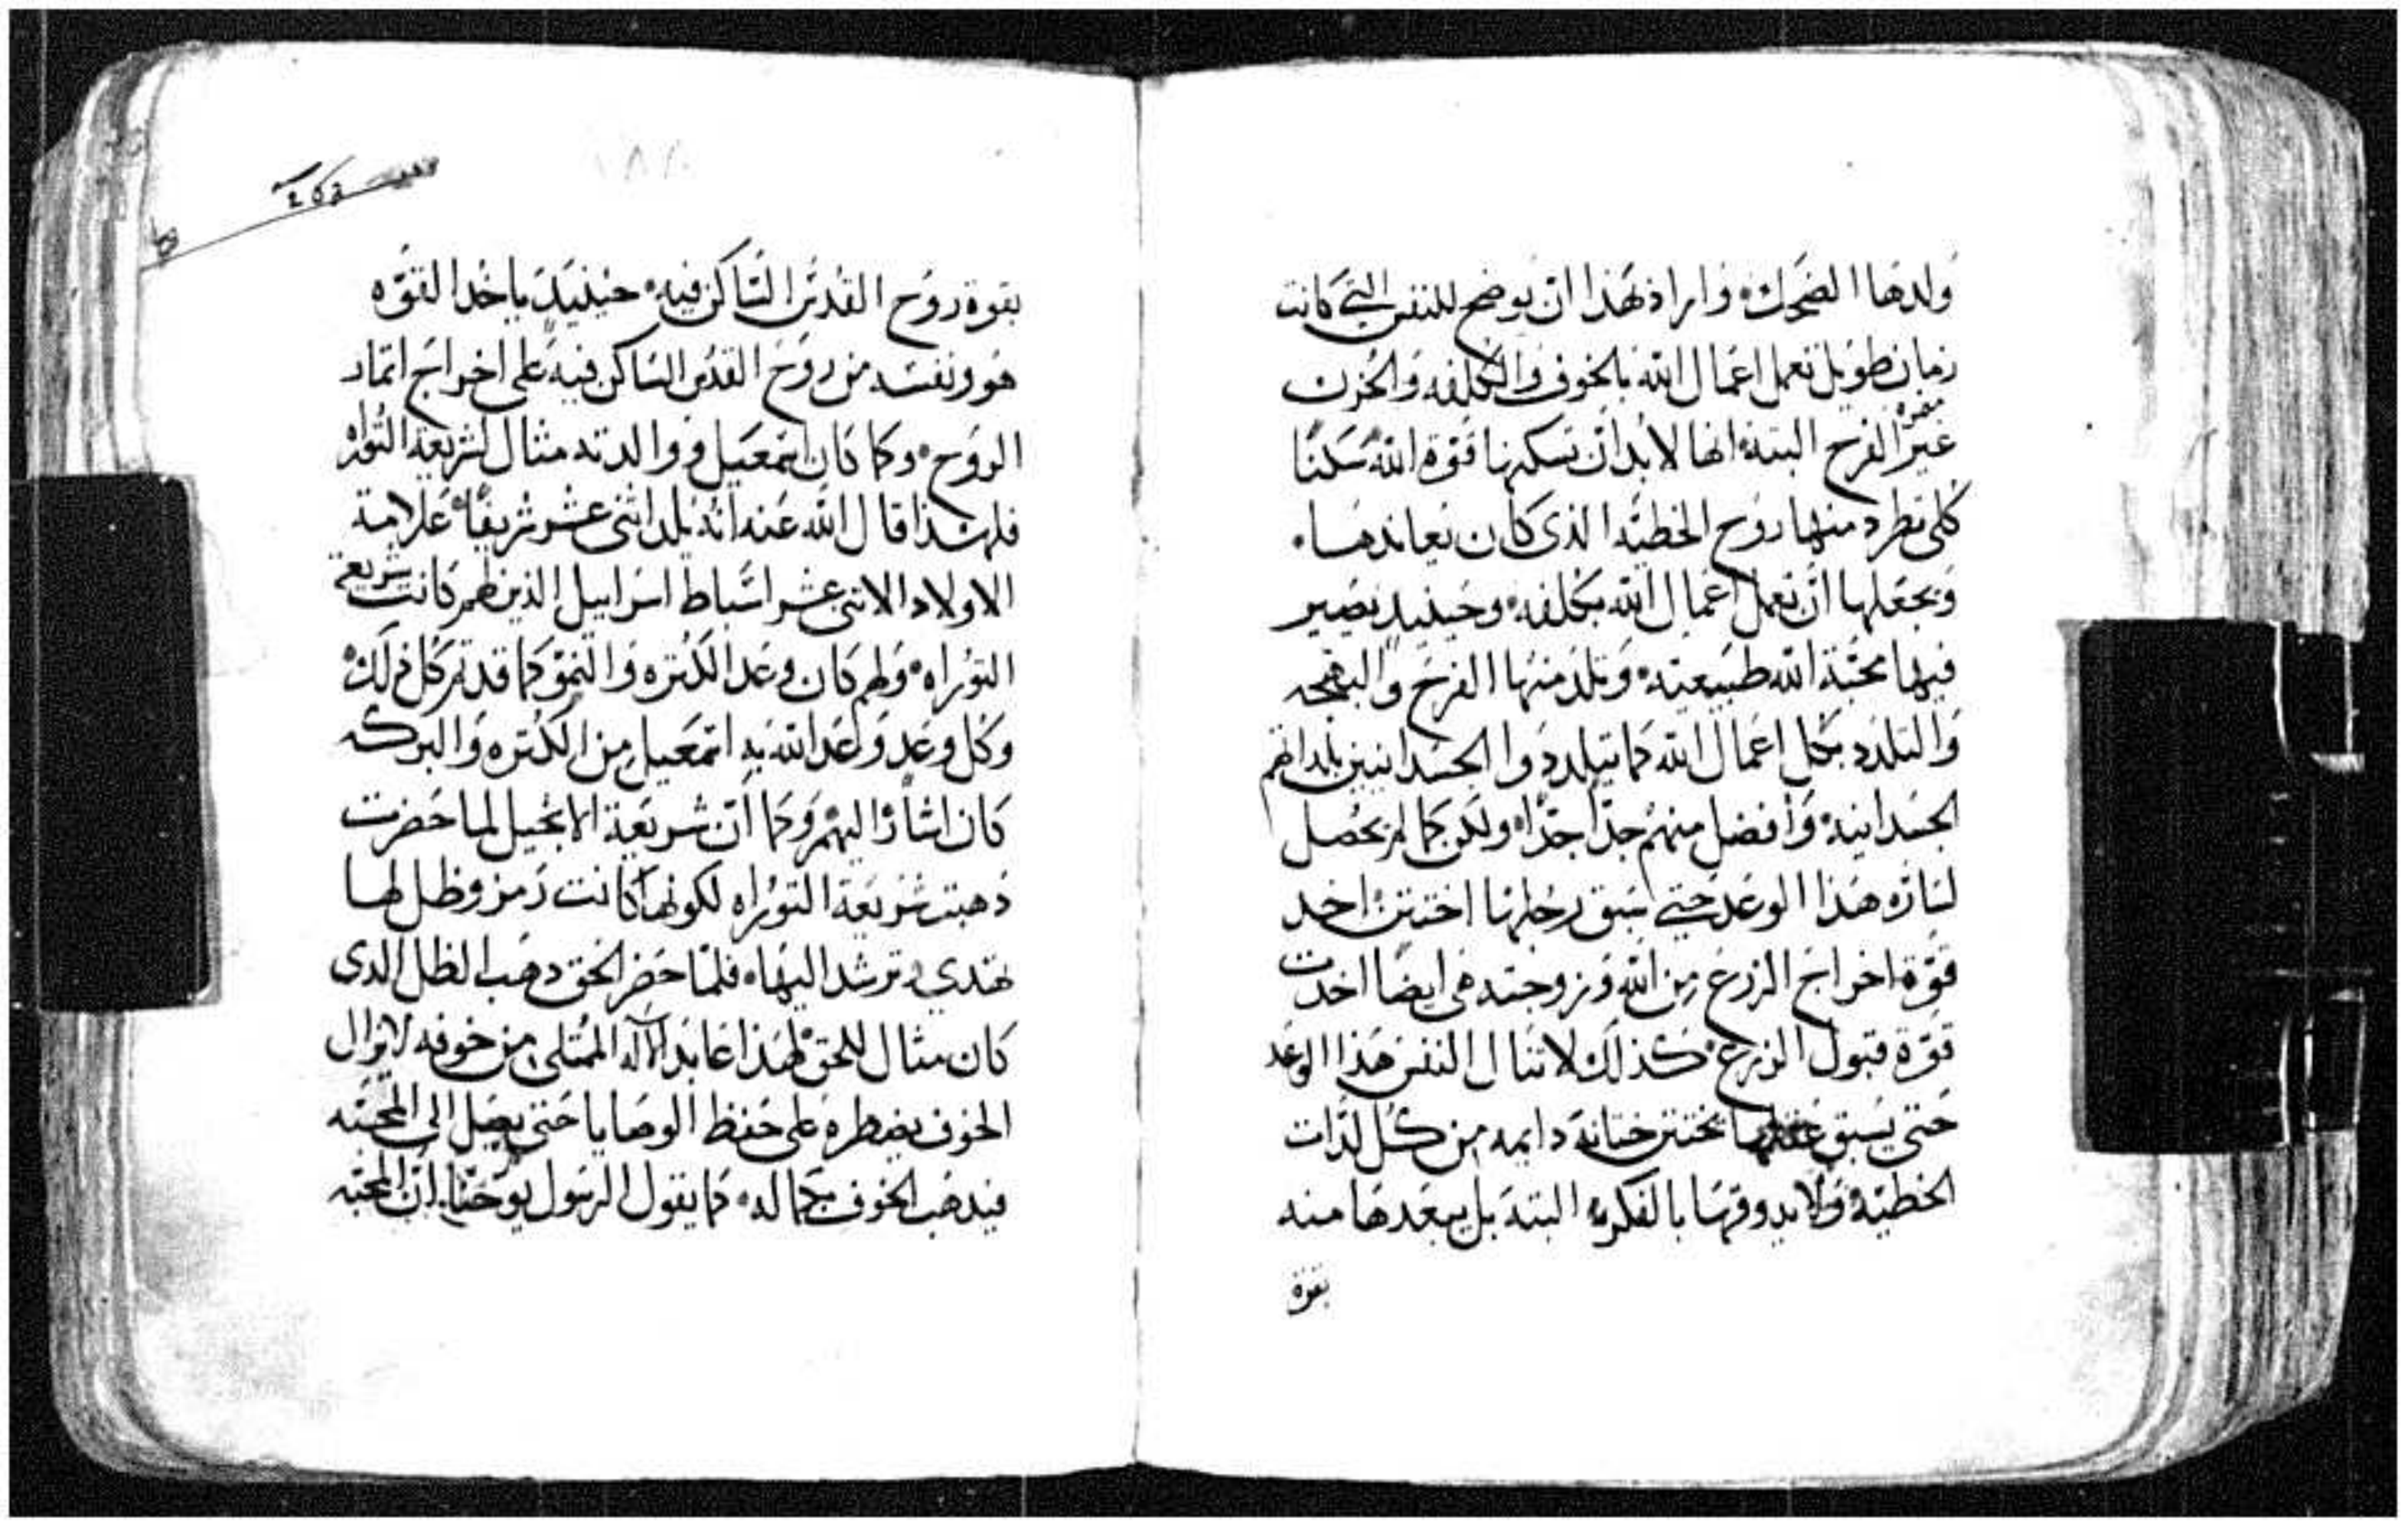 ولدها الضحك، واراد بهذا ان يوضح للنفس التي كانت
زمان طويل تعمل اعمال الله بالخوف والكلفه والحزن
معرفه
غير الفرح البتة، انها لابد ان تسكنها قوة الله سكنًا
كلى تطرد منها روح الخطيه الذى كان يعاندها.
ويجعلها ان تعمل اعمال الله بكلفه، وحينيد يصير
فيها محبة الله طبيعيته، وتلد منها الفرح والبهجه
والتلدد بكل اعمال الله كما تيلددوا الجسدانيين بلداتهم
الجسدانيه، وافضل منهم جدًا جدًا، ولكن كما لم يحصل
لساره هذا الوعد حتي سبق رجلها اختتن، اخد
قوة اخراج الزرع من الله وزوجته هى ايضًا اخدت
قوة قبول الزرع، كذلك لا تنال النفس هذا الوعد
حتي يسبق عقلها يختتن ختانة دايمه من كل لدات
الخطيه، ولا يدوقها بالفكره البته بل يبعدها منه
بقوة
بقوة روح القدس الساكن فيه، حينيد ياخد القوه
هو ونفسه من روح القدس الساكن فيه على اخراج اتمار
الروح، وكما كان اسمعيل ووالدته مثال لشريعة التوراه
فلهذا قال الله عنه انه يلد اثنى عشر شريفًا، علامة
الاولاد الاثنى عشر اسباط اسراييل الذين لهم كانت شريعة
التوراه، ولهم كان وعد الكثره والنمو كما قد تم كل ذلك،
وكل وعد وعد الله به اسمعيل من الكثره والبركه
كان اشارة اليهم، وكما ان شريعة الانجيل لما حضرت
ذهبت شريعة التوراه لكونها كانت رمز وظل لها
تهتدي وترشد اليها، فلما حضر الحق دهب الظل الدى
كان مثال للحق، لهذا عابد الاله الممتلى من خوفه لا يزال
الخوف يضطره على حفظ الوصايا حتى يصل الى المحبه
فيدهب الخوف بكماله، كما يقول الرسول يوحنا، ان المحبه